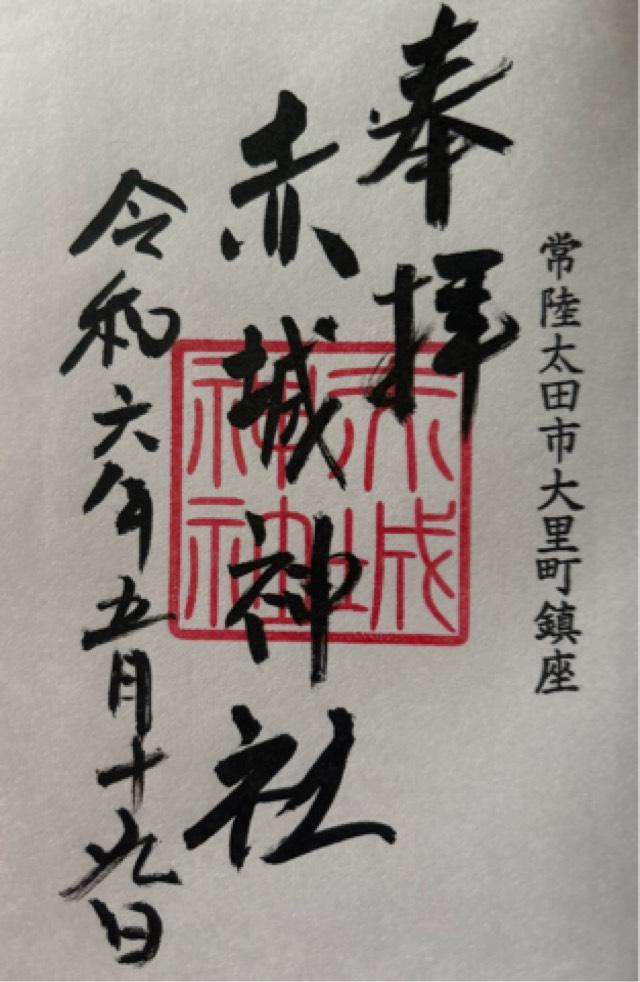 常陸太田市大里町鎮座
奉拝
赤城神社
令和六年五月十九日